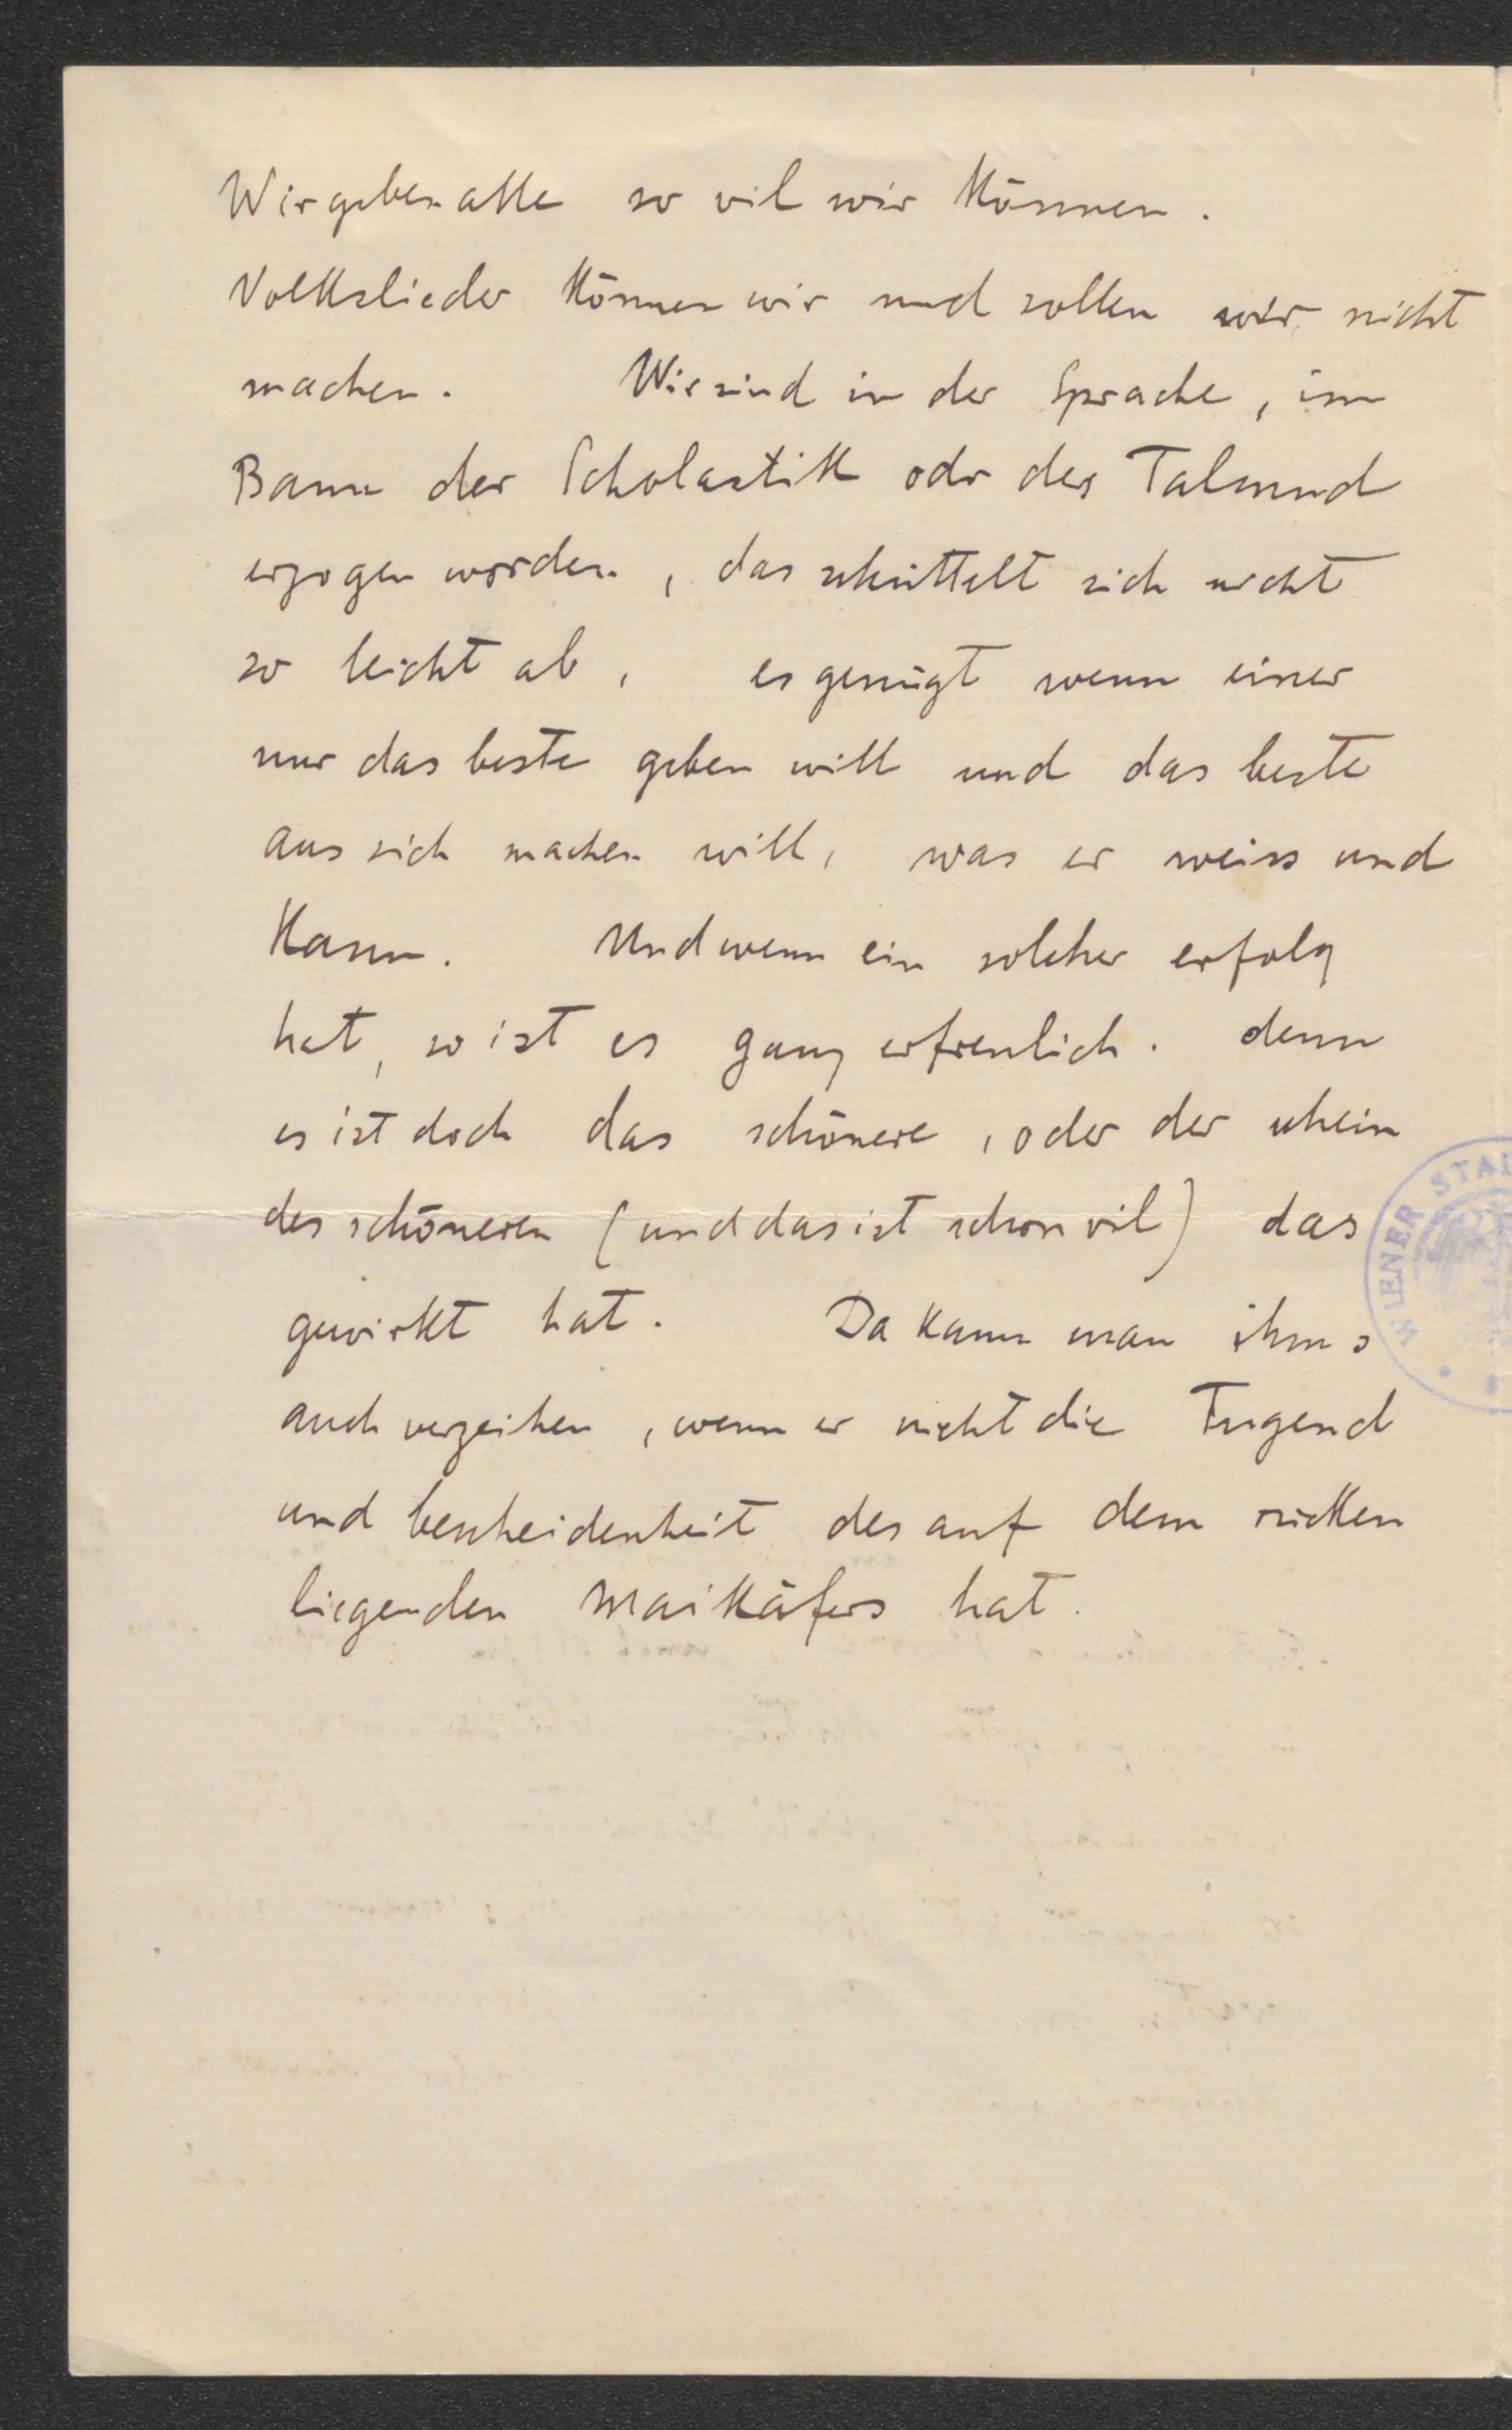 Wir geben alle so vil wir können.
Volkslieder können wir und sollen wir nicht
machen. Wir sind in der Sprache, im
Bann der Scholastik odr des Talmud
erzogen worden, das schüttelt sich nicht
so leicht ab, es genügt wenn einer
nur das beste geben will und das beste
aus sich machen will, was er weiss und
kann. Und wenn ein solcher erfolg
hat, so ist es ganz erfreulich. denn
es ist doch das schönere, oder der schein
des schöneren (und das ist schon vil) das
gewirkt hat. Da kann man ihms
auch verzeihen, wenn er nicht die Tugend
und bescheidenheit des auf dem rücken
liegenden Maikäfers hat.
WIENER